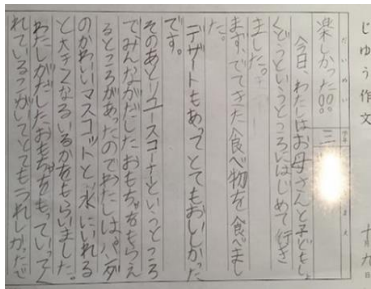 じゆう作文
十九日
だいめい
楽しかった〇〇。
三
学年
今日、わたしはお母さんと子どもしょ
くどうというところにはじめて行き
ました。
まず、でてきた食べ物を食べまし
た。
デザートもあってとてもおいしかった
です。
そのあとリユースコーナーというところ
でみんながだしたおもちゃをもらえ
るところがあったのでわたしはパンダ
のかわいいマスコットと、水にいれる
と大きくなるいるかをもらいました。
わたしがだしたおもちゃをもっていってく
れている子がいてとてもうれしかったで